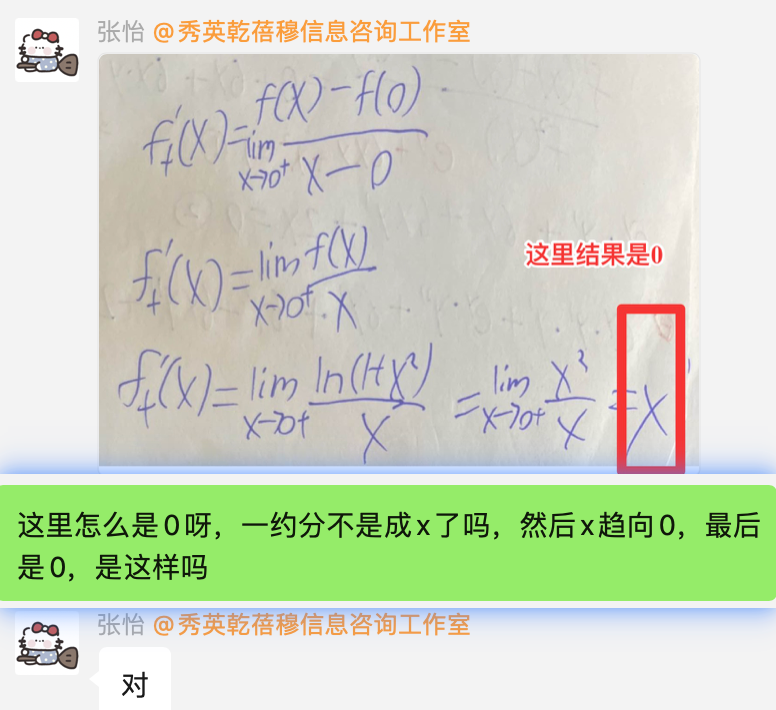 张怡 @秀英乾蓓穆信息咨询工作室
f₊'(x)=lim x→0⁺ f(x)-f(0) / x-0
f₊'(x)=lim x→0⁺ f(x) / x
这里结果是0
f₊'(x)=lim x→0⁺ ln(1+x²) / x =lim x→0⁺ x² / x =x
这里怎么是0呀，一约分不是成x了吗，然后x趋向0，最后
是0，是这样吗
张怡 @秀英乾蓓穆信息咨询工作室
对